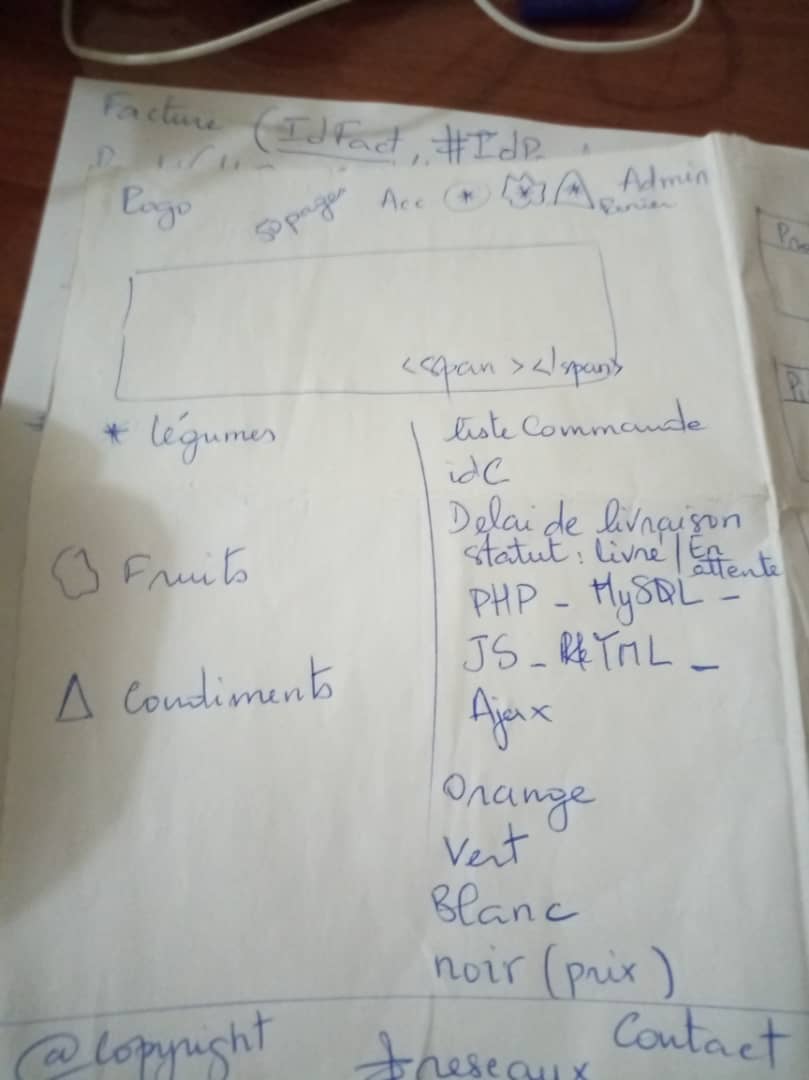 Facture (IdFact, #IdP
Logo 50 pages Acc * * * Admin
Panier
<span></span>
* légumes
Fruits
Δ Condiments
liste Commande
idC
Delai de livraison
statut : livré | En
attente
PHP - MySQL -
JS - HTML -
Ajax
Orange
Vert
Blanc
noir (prix)
@copyright
reseaux
Contact